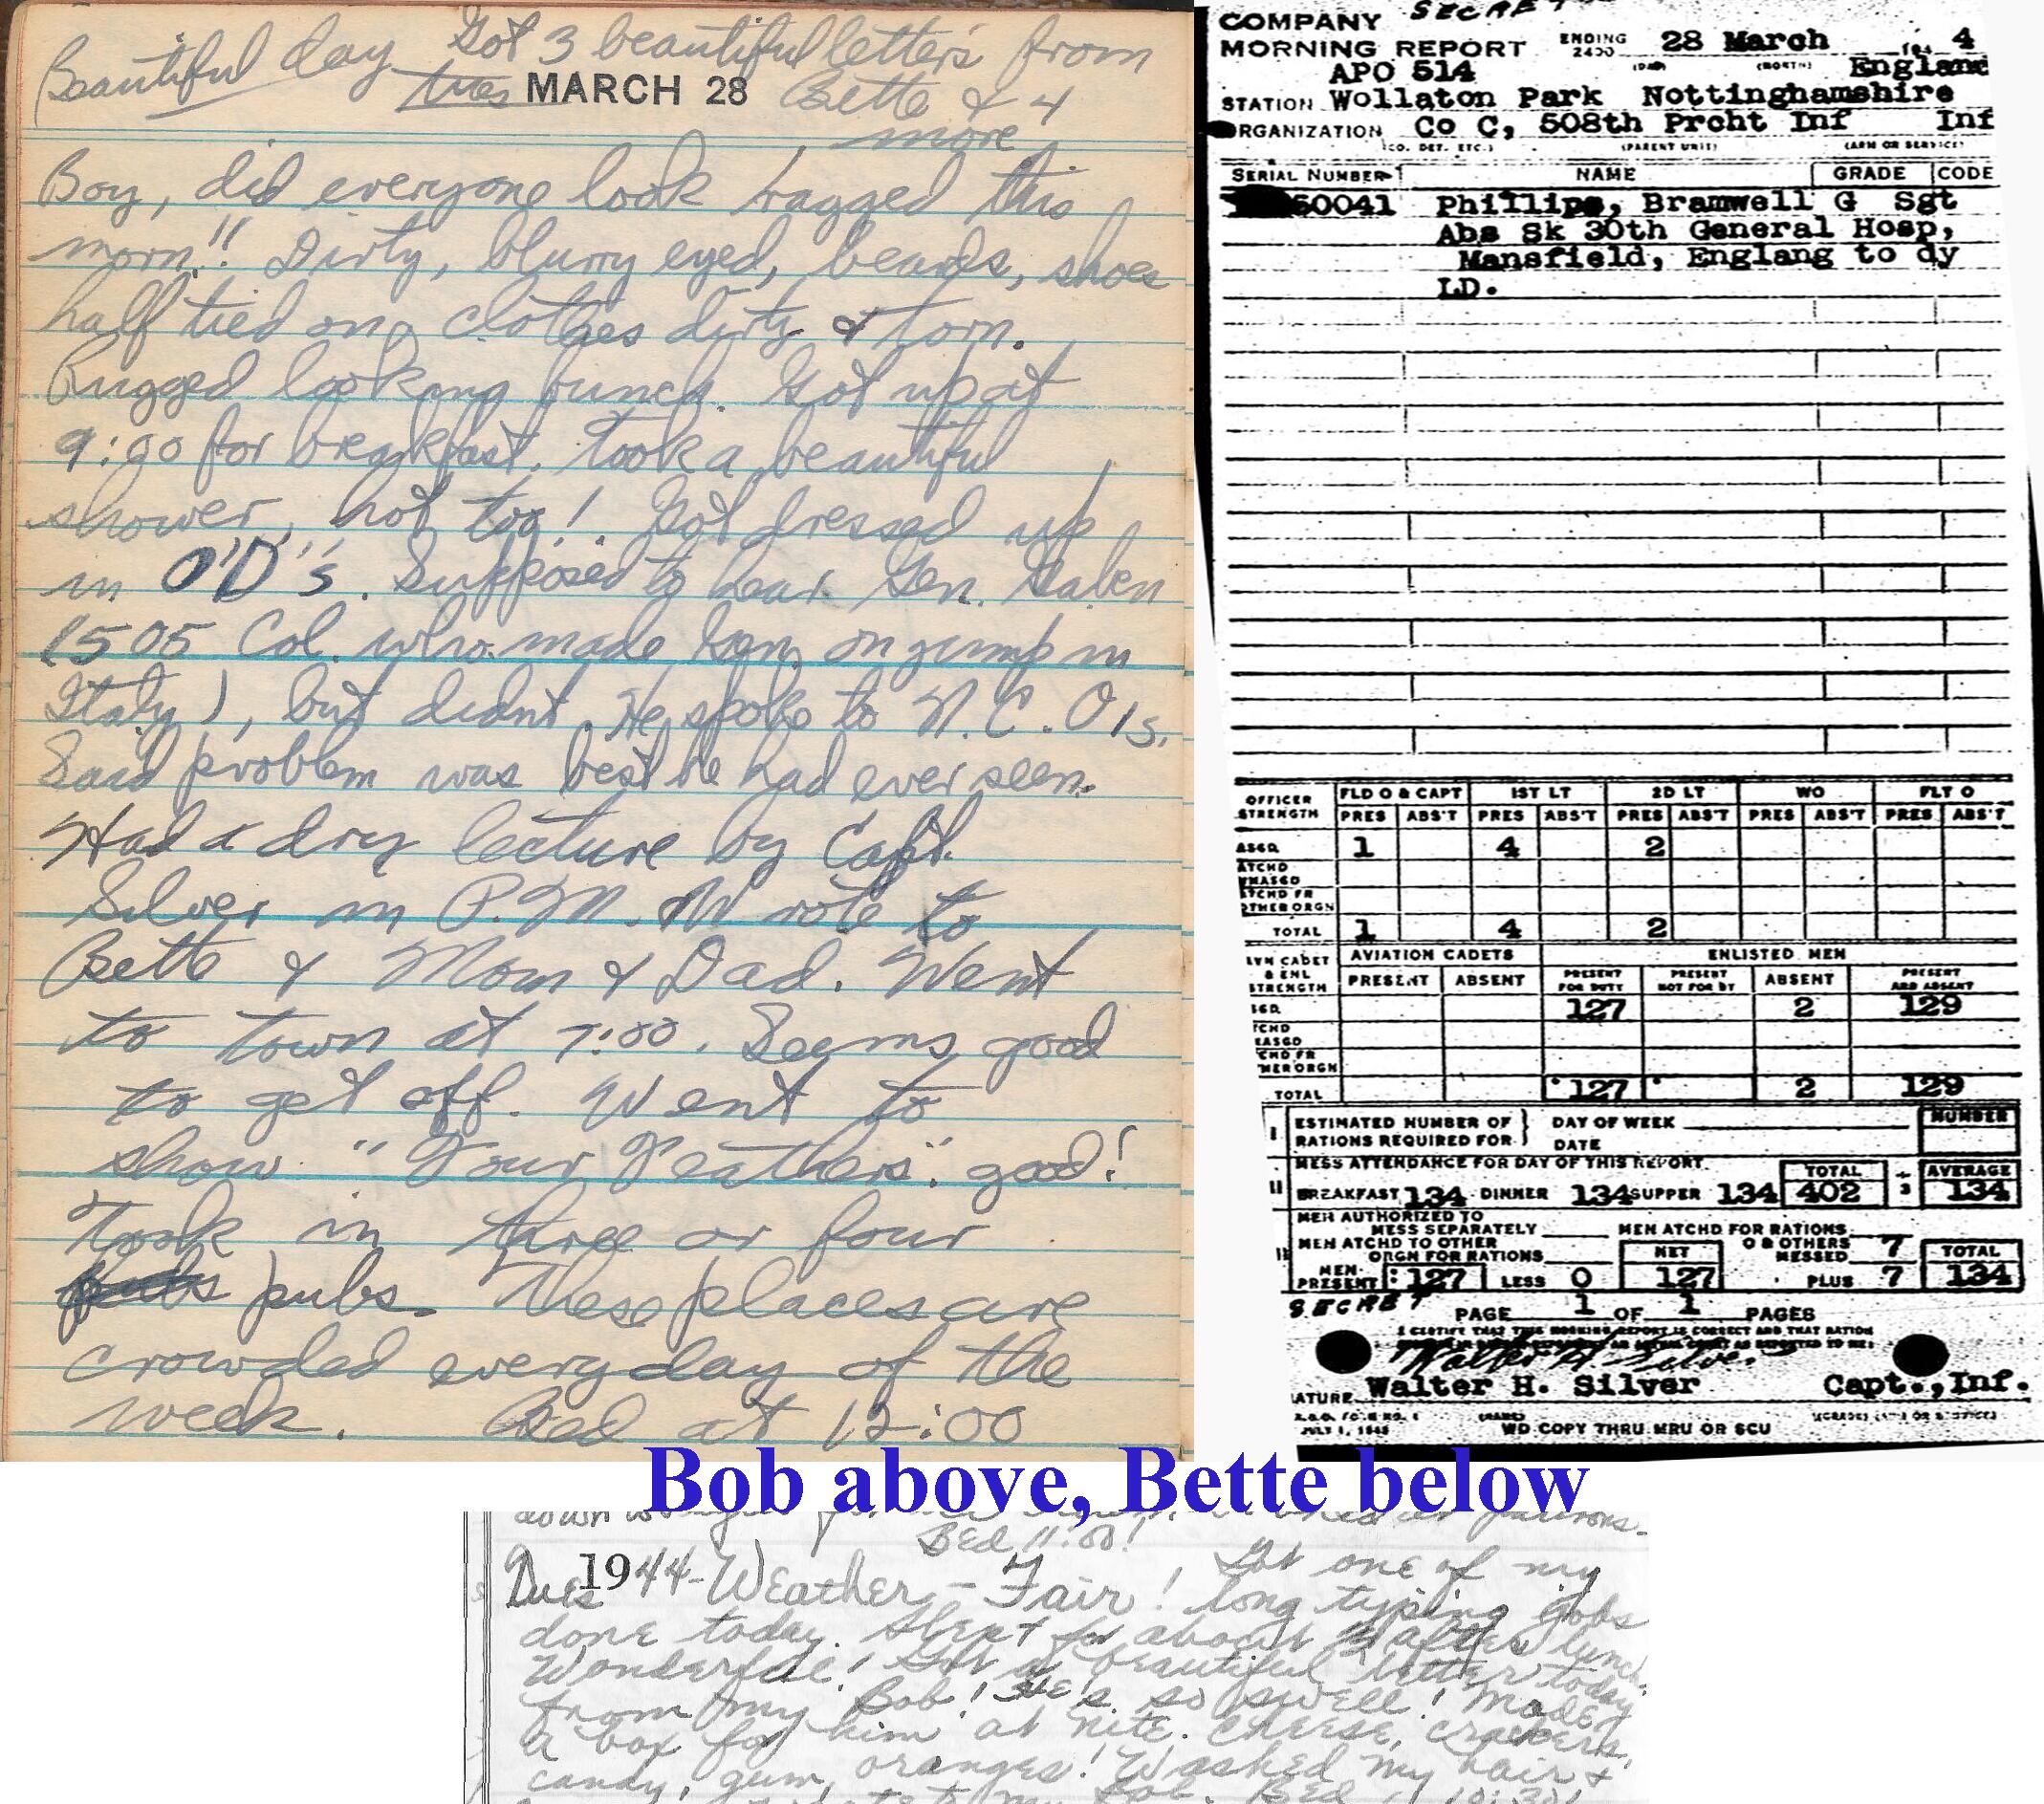 Beautiful day. Got 3 beautiful letters from
Tues MARCH 28 Bette & 4
more
Boy, did everyone look ragged this
morn!! Dirty, blurry eyed, beards, shoes
half tied on, clothes dirty & torn.
Rugged looking bunch. Got up at
9:00 for breakfast, took a beautiful
shower, hot too! Got dressed up
in O'D's. Supposed to hear Gen.
(505 Col. who made Gen. on jump in
Italy), but didnt. He spoke to N.C.O's.
Said problem was best he had ever seen.
Had a dry lecture by Capt.
Silver in P.M. Wrote to
Bette & Mom & Dad. Went
to town at 7:00. Seems good
to get off. Went to
show "Four Feathers". good!
Took in three or four
pubs. These places are
crowded everyday of the
week. Bed at 12:00
SECRET
COMPANY
MORNING REPORT ENDING 2400 28 March 4
(DAY) (MONTH)
APO 514 England
STATION Wollaton Park Nottinghamshire
RGANIZATION Co C, 508th Prcht Inf Inf
(CO. DET. ETC.) (PARENT UNIT) (ARM OR SERVICE)
SERIAL NUMBER NAME GRADE CODE
50041 Phillips, Bramwell G Sgt
Abs Sk 30th General Hosp,
Mansfield, Englang to dy
LD.
OFFICER STRENGTH FLD O & CAPT 1ST LT 2D LT WO FLT O
PRES ABS'T PRES ABS'T PRES ABS'T PRES ABS'T PRES ABS'T
ASGD 1 4 2
ATCHD
UNASGD
ATCHD FR
OTHER ORGN
TOTAL 1 4 2
AVIATION CADETS ENLISTED MEN
& ENL STRENGTH PRESENT ABSENT PRESENT FOR DUTY PRESENT NOT FOR DY ABSENT PRESENT AND ABSENT
SGD 127 2 129
TCHD
ASGD
CHD FR
HER ORGN
TOTAL 127 2 129
I ESTIMATED NUMBER OF RATIONS REQUIRED FOR DAY OF WEEK DATE NUMBER
MESS ATTENDANCE FOR DAY OF THIS REPORT TOTAL AVERAGE
II BREAKFAST 134 DINNER 134 SUPPER 134 402 ÷ 3 134
MEN AUTHORIZED TO MESS SEPARATELY MEN ATCHD FOR RATIONS
MEN ATCHD TO OTHER ORGN FOR RATIONS NET O & OTHERS MESSED 7 TOTAL
III MEN PRESENT 127 LESS 0 127 PLUS 7 134
SECRET PAGE 1 OF 1 PAGES
I CERTIFY THAT THIS MORNING REPORT IS CORRECT AND THAT RATION
Walter H Silver
ATURE Walter H. Silver Capt., Inf.
JULY 1, 1943 WD COPY THRU MRU OR SCU
Bob above, Bette below
Bed 11:00!
Tues 1944 - Weather - Fair! Got one of my
long typing jobs
done today. Slept for about after lunch.
Wonderful! Got a beautiful letter today
from my Bob! He's so swell! Made
a box for him at nite. Cheese, crackers,
candy, gum, oranges! Washed my hair &
to my Bob. Bed 10:30!